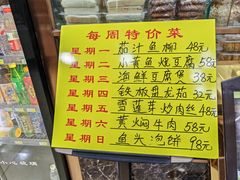 每周特价菜
星期一 茄汁鱼柳 48元
星期二 小黄鱼烧豆腐 58元
星期三 海鲜豆腐煲 38元
星期四 铁板盘龙茄 32元
星期五 雪莲芽炒肉丝 48元
星期六 黄焖牛肉 58元
星期日 鱼头泡饼 98元